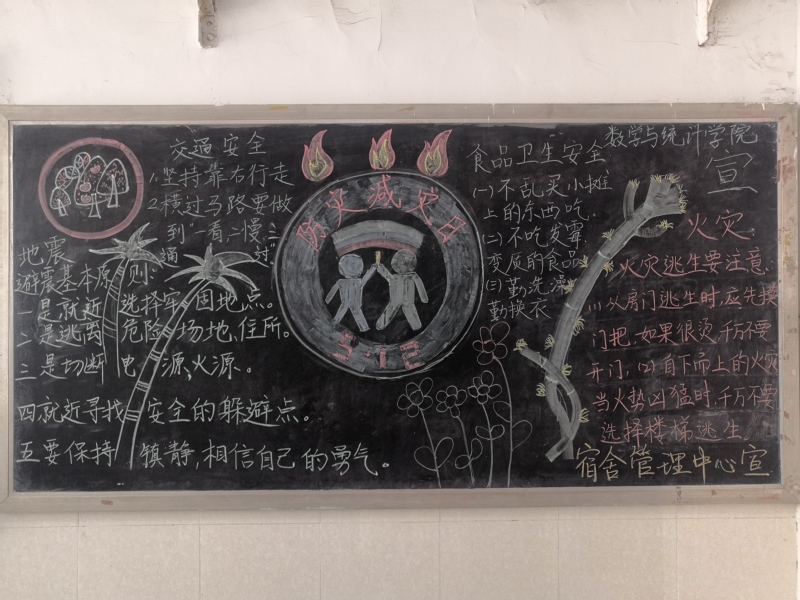 交通安全
1.坚持靠右行走
2.横过马路要做
到"一看二慢三
通过"
地震
避震基本原则:
一是就近选择牢固地点。
二是逃出危险场地、住所。
三是切断电源,火源。
四就近寻找安全的躲避点。
五要保持镇静,相信自己的勇气。
防灾减灾日
5·12
食品卫生安全
(一)不乱买小摊
上的东西吃.
(二)不吃发霉
变质的食品
(三)勤洗澡
勤换衣
数学与统计学院
宣
火灾
火灾逃生要注意:
(1)从房门逃生时,应先摸
门把,如果很烫,千万不要
开门;(2)自下而上的火灾
当火势凶猛时,千万不要
选择楼梯逃生.
宿舍管理中心宣